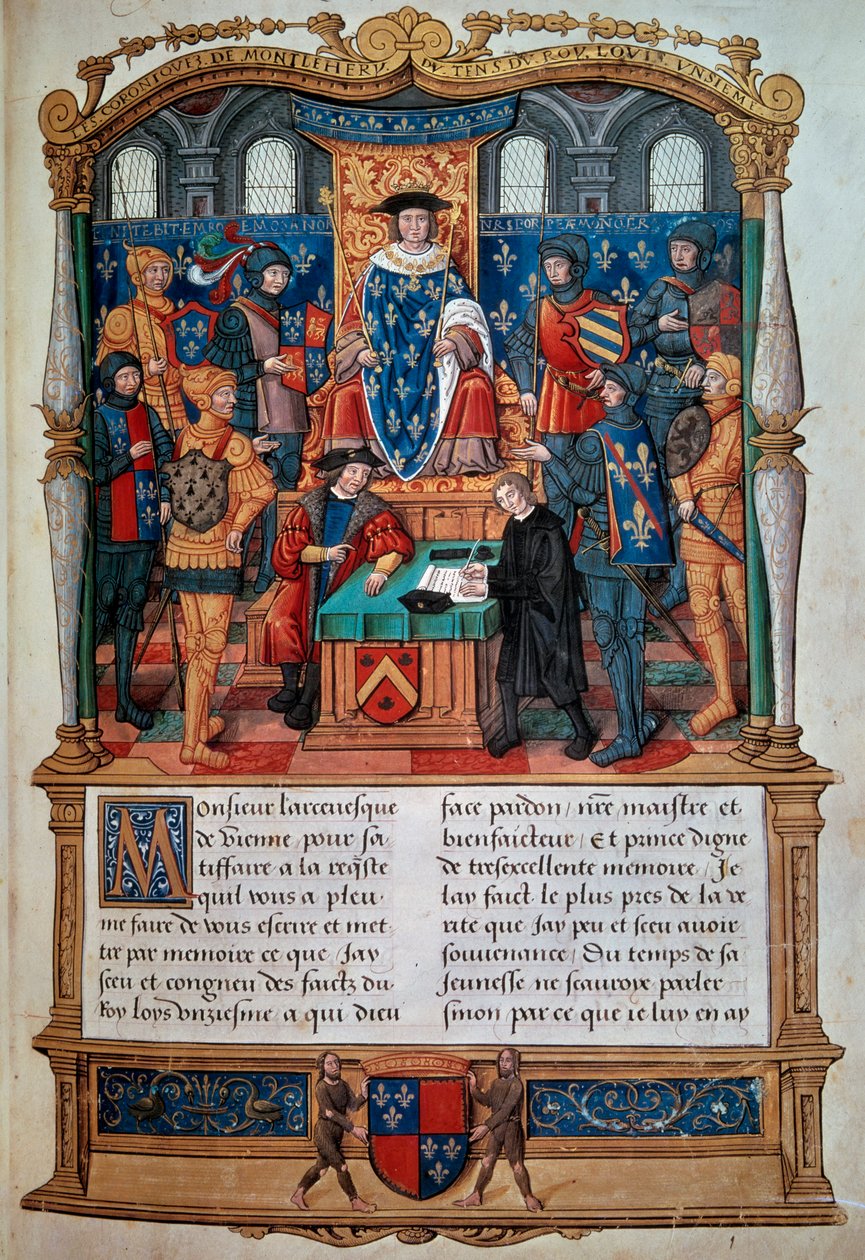 LES CORONIQVEZ DE MONTLEHERY DV TENS DV ROY LOVIS VNSIEME
Monsieur l'arcevesque
de vienne pour sa-
tiffaire a la reqste
quil vous a pleu
me faire de vous escrire et met-
tre par memoire ce que Jay
sceu et congneu des faictz du
Roy loys unziesme a qui dieu
face pardon / nre maistre et
bienfaicteur / Et prince digne
de tresexcellente memoire / Je
lay faict le plus pres de la ve
rite que Jay peu et sceu avoir
souvenance / Du temps de sa
Jeunesse ne scauroye parler
sinon par ce que ie luy en ay